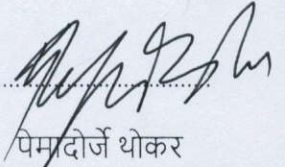 पेमादोर्जे थोकर